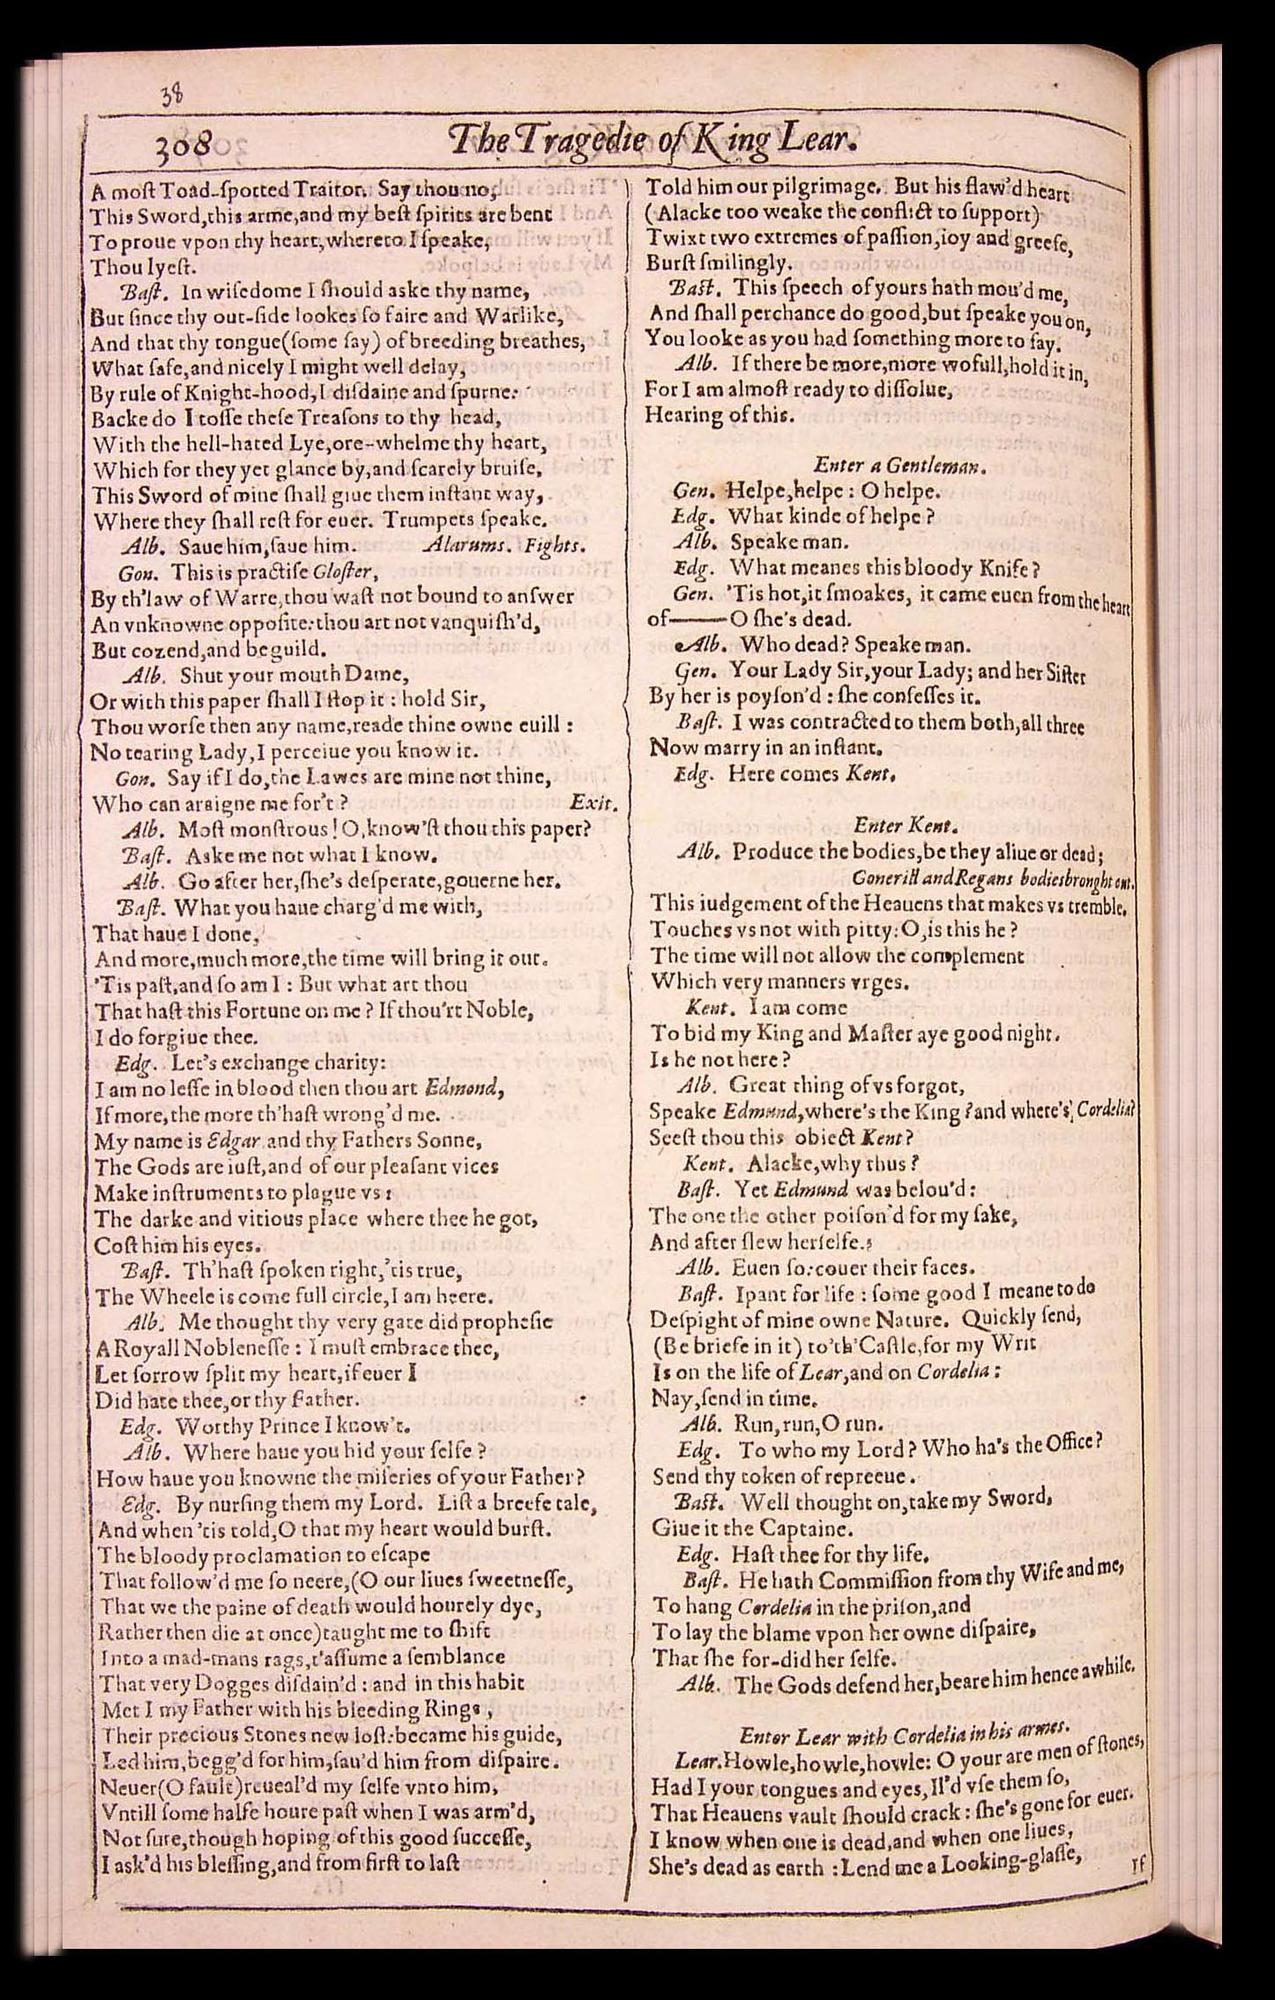 38
308
The Tragedie of King Lear.
A most Toad-spotted Traitor. Say thou no,
This Sword,this arme,and my best spirits are bent
To proue vpon thy heart,whereto I speake,
Thou lyest.
Bast. In wisedome I should aske thy name,
But since thy out-side lookes so faire and Warlike,
And that thy tongue(some say) of breeding breathes,
What safe,and nicely I might well delay,
By rule of Knight-hood,I disdaine and spurne:
Backe do I tosse these Treasons to thy head,
With the hell-hated Lye,ore-whelme thy heart,
Which for they yet glance by,and scarely bruise,
This Sword of mine shall giue them instant way,
Where they shall rest for euer. Trumpets speake.
Alb. Saue him,saue him. Alarums. Fights.
Gon. This is practise Gloster,
By th'law of Warre,thou wast not bound to answer
An vnknowne opposite:thou art not vanquish'd,
But cozend,and beguild.
Alb. Shut your mouth Dame,
Or with this paper shall I stop it : hold Sir,
Thou worse then any name,reade thine owne euill :
No tearing Lady,I perceiue you know it.
Gon. Say if I do,the Lawes are mine not thine,
Who can araigne me for't ? Exit.
Alb. Most monstrous ! O,know'st thou this paper?
Bast. Aske me not what I know.
Alb. Go after her,she's desperate,gouerne her.
Bast. What you haue charg'd me with,
That haue I done,
And more,much more,the time will bring it out.
'Tis past,and so am I : But what art thou
That hast this Fortune on me ? If thou'rt Noble,
I do forgiue thee.
Edg. Let's exchange charity:
I am no lesse in blood then thou art Edmond,
If more,the more th'hast wrong'd me.
My name is Edgar and thy Fathers Sonne,
The Gods are iust,and of our pleasant vices
Make instruments to plague vs :
The darke and vitious place where thee he got,
Cost him his eyes.
Bast. Th'hast spoken right,'tis true,
The Wheele is come full circle,I am heere.
Alb. Me thought thy very gate did prophesie
A Royall Noblenesse : I must embrace thee,
Let sorrow split my heart,if euer I
Did hate thee,or thy Father.
Edg. Worthy Prince I know't.
Alb. Where haue you hid your selfe ?
How haue you knowne the miseries of your Father?
Edg. By nursing them my Lord. List a breefe tale,
And when 'tis told,O that my heart would burst.
The bloody proclamation to escape
That follow'd me so neere,(O our liues sweetnesse,
That we the paine of death would hourely dye,
Rather then die at once)taught me to shift
Into a mad-mans rags,t'assume a semblance
That very Dogges disdain'd : and in this habit
Met I my Father with his bleeding Rings,
Their precious Stones new lost:became his guide,
Led him,begg'd for him,sau'd him from dispaire.
Neuer(O fault)reueal'd my selfe vnto him,
Vntill some halfe houre past when I was arm'd,
Not sure,though hoping of this good successe,
I ask'd his blessing,and from first to last
Told him our pilgrimage. But his flaw'd heart
(Alacke too weake the conflict to support)
Twixt two extremes of passion,ioy and greefe,
Burst smilingly.
Bast. This speech of yours hath mou'd me,
And shall perchance do good,but speake you on,
You looke as you had something more to say.
Alb. If there be more,more wofull,hold it in,
For I am almost ready to dissolue,
Hearing of this.
Enter a Gentleman.
Gen. Helpe,helpe : O helpe.
Edg. What kinde of helpe ?
Alb. Speake man.
Edg. What meanes this bloody Knife ?
Gen. 'Tis hot,it smoakes, it came euen from the heart
of——O she's dead.
Alb. Who dead? Speake man.
Gen. Your Lady Sir,your Lady; and her Sister
By her is poyson'd : she confesses it.
Bast. I was contracted to them both,all three
Now marry in an instant.
Edg. Here comes Kent.
Enter Kent.
Alb. Produce the bodies,be they aliue or dead;
Gonerill and Regans bodiesbronght out.
This iudgement of the Heauens that makes vs tremble,
Touches vs not with pitty: O,is this he ?
The time will not allow the complement
Which very manners vrges.
Kent. I am come
To bid my King and Master aye good night.
Is he not here ?
Alb. Great thing of vs forgot,
Speake Edmund,where's the King ?and where's Cordelia?
Seest thou this obiect Kent ?
Kent. Alacke,why thus ?
Bast. Yet Edmund was belou'd :
The one the other poison'd for my sake,
And after slew herselfe.
Alb. Euen so:couer their faces.
Bast. I pant for life : some good I meane to do
Despight of mine owne Nature. Quickly send,
(Be briefe in it) to'th'Castle,for my Writ
Is on the life of Lear,and on Cordelia :
Nay,send in time.
Alb. Run,run,O run.
Edg. To who my Lord ? Who ha's the Office ?
Send thy token of repreeue.
Bast. Well thought on,take my Sword,
Giue it the Captaine.
Edg. Hast thee for thy life.
Bast. He hath Commission from thy Wife and me,
To hang Cordelia in the prison,and
To lay the blame vpon her owne dispaire,
That she for-did her selfe.
Alb. The Gods defend her,beare him hence awhile.
Enter Lear with Cordelia in his armes.
Lear.Howle,howle,howle: O your are men of stones,
Had I your tongues and eyes, Il'd vse them so,
That Heauens vault should crack : she's gone for euer.
I know when one is dead,and when one liues,
She's dead as earth : Lend me a Looking-glasse,
If